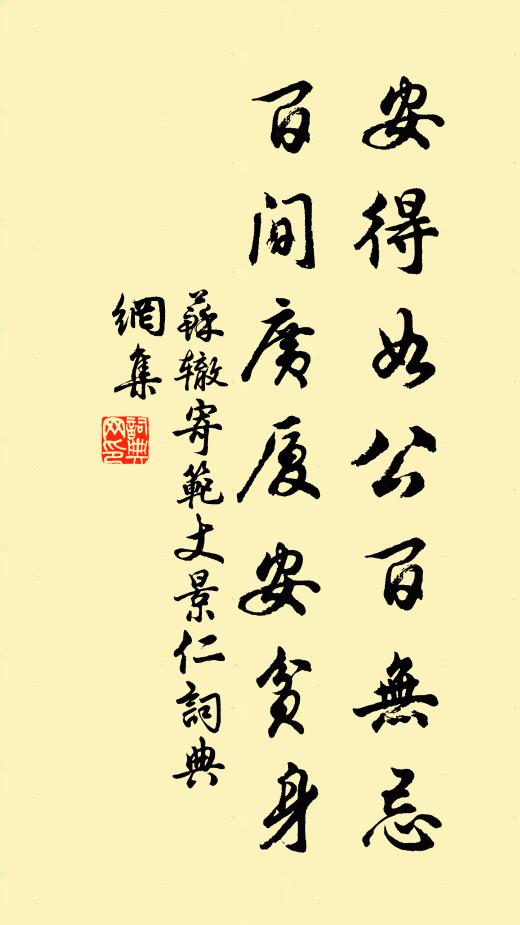 安得如公百無忌
百间廣厦安貧身
蘇辙寄範丈景仁詞典
網集
詞典
网印